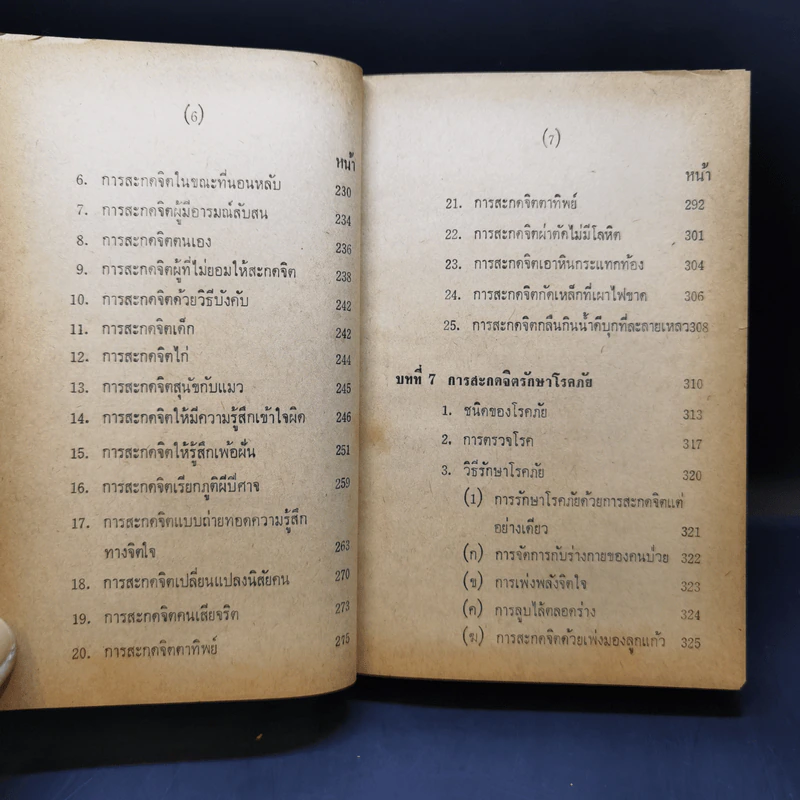 (6)
หน้า
6. การสะกดจิตในขณะที่นอนหลับ 230
7. การสะกดจิตผู้มีอารมณ์สับสน 234
8. การสะกดจิตตนเอง 236
9. การสะกดจิตผู้ที่ไม่ยอมให้สะกดจิต 238
10. การสะกดจิตด้วยวิธีบังคับ 242
11. การสะกดจิตเด็ก 242
12. การสะกดจิตไก่ 244
13. การสะกดจิตสุนัขกับแมว 245
14. การสะกดจิตให้มีความรู้สึกเข้าใจผิด 246
15. การสะกดจิตให้รู้สึกเพ้อฝัน 251
16. การสะกดจิตเรียกภูติผีปีศาจ 259
17. การสะกดจิตแบบถ่ายทอดความรู้สึก
ทางจิตใจ 263
18. การสะกดจิตเปลี่ยนแปลงนิสัยคน 270
19. การสะกดจิตคนเสียจริต 273
20. การสะกดจิตตาทิพย์ 275
(7)
หน้า
21. การสะกดจิตตาทิพย์ 292
22. การสะกดจิตผ่าตัดไม่มีโลหิต 301
23. การสะกดจิตเอาหินกระแทกท้อง 304
24. การสะกดจิตกัดเหล็กที่เผาไฟขาด 306
25. การสะกดจิตกลืนกินน้ำดีบุกที่ละลายเหลว 308
บทที่ 7 การสะกดจิตรักษาโรคภัย 310
1. ชนิดของโรคภัย 313
2. การตรวจโรค 317
3. วิธีรักษาโรคภัย 320
(1) การรักษาโรคภัยด้วยการสะกดจิตแต่
อย่างเดียว 321
(ก) การจัดการกับร่างกายของคนป่วย 322
(ข) การเพ่งพลังจิตใจ 323
(ค) การลูบไล้ตลอดร่าง 324
(ฆ) การสะกดจิตด้วยเพ่งมองลูกแก้ว 325